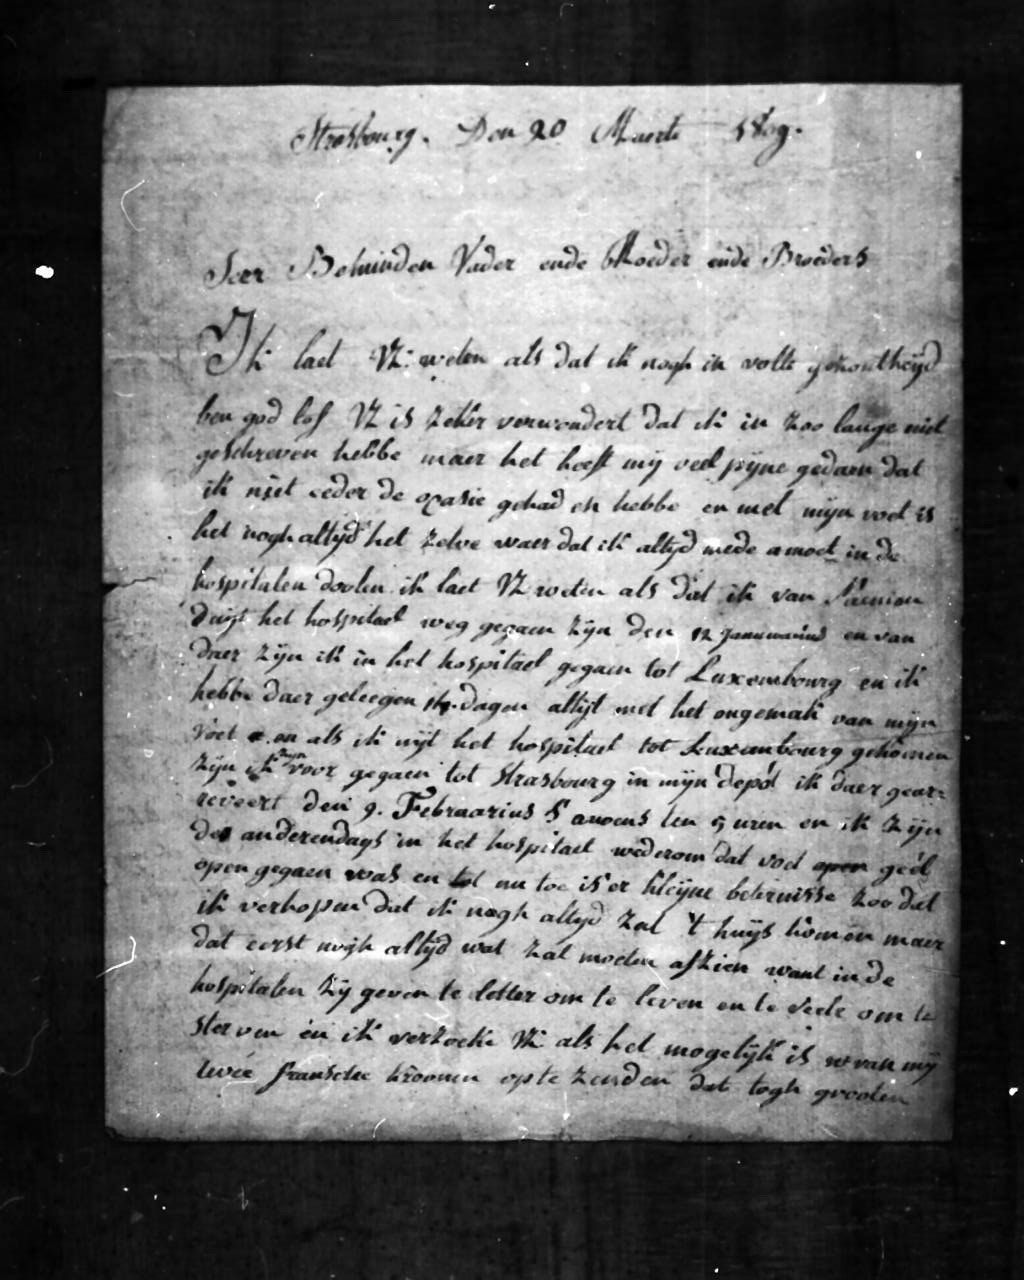 Strasbourg. Den 20 Maerte 1809.
Seer Beminden Vader ende Moeder ende Broeders
Ik laet VL: weten als dat ik nogh in volle gesontheijd
ben god lof VL is zeker verwondert dat ik in zoo lange niet
geschreven hebbe maer het heeft mij veel pijne gedaen dat
ik niet eeder de ocasie gehad en hebbe en met mijn voet is
het nogh altijd het zelve waer dat ik altijd mede moet in de
hospitalen doolen ik laet VL weten als dat ik van
duijt het hospitael weg gegaen zijn den 12 januwarius en van
daer zijn ik in het hospitael gegaen tot Luxembourg en ik
hebbe daer geleegen dagen altijt met het ongemak van mijn
voet en als ik uijt het hospitael tot Luxembourg gekomen
zijn ik voor gegaen tot Strasbourg in mijn depot ik daer gear=
reveert den 9. Februarius S avoens ten 5 uren en ik zijn
des anderendags in het hospitael wederom dat voet geel
open gegaen was en tot nu toe is er kleijne beternisse zoo dat
ik verhopen dat ik nogh altijd zal 't huijs komen maer
dat eerst nogh altijd wat zal moeten afzien want in de
hospitalen zij geven te letter om te leven en te veele om te
sterven en ik verzoeke VL als het mogelijk is van mij
twee fransche kroonen op te zenden dat togh grooten